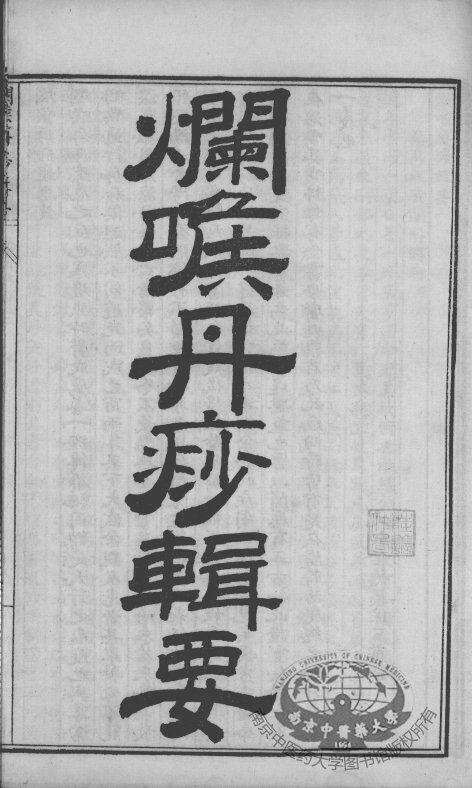 爛喉丹痧輯要
NANJING UNIVERSITY OF CHINESE MEDICINE
南京中醫藥大學
1954
南京中医药大学图书馆版权所有